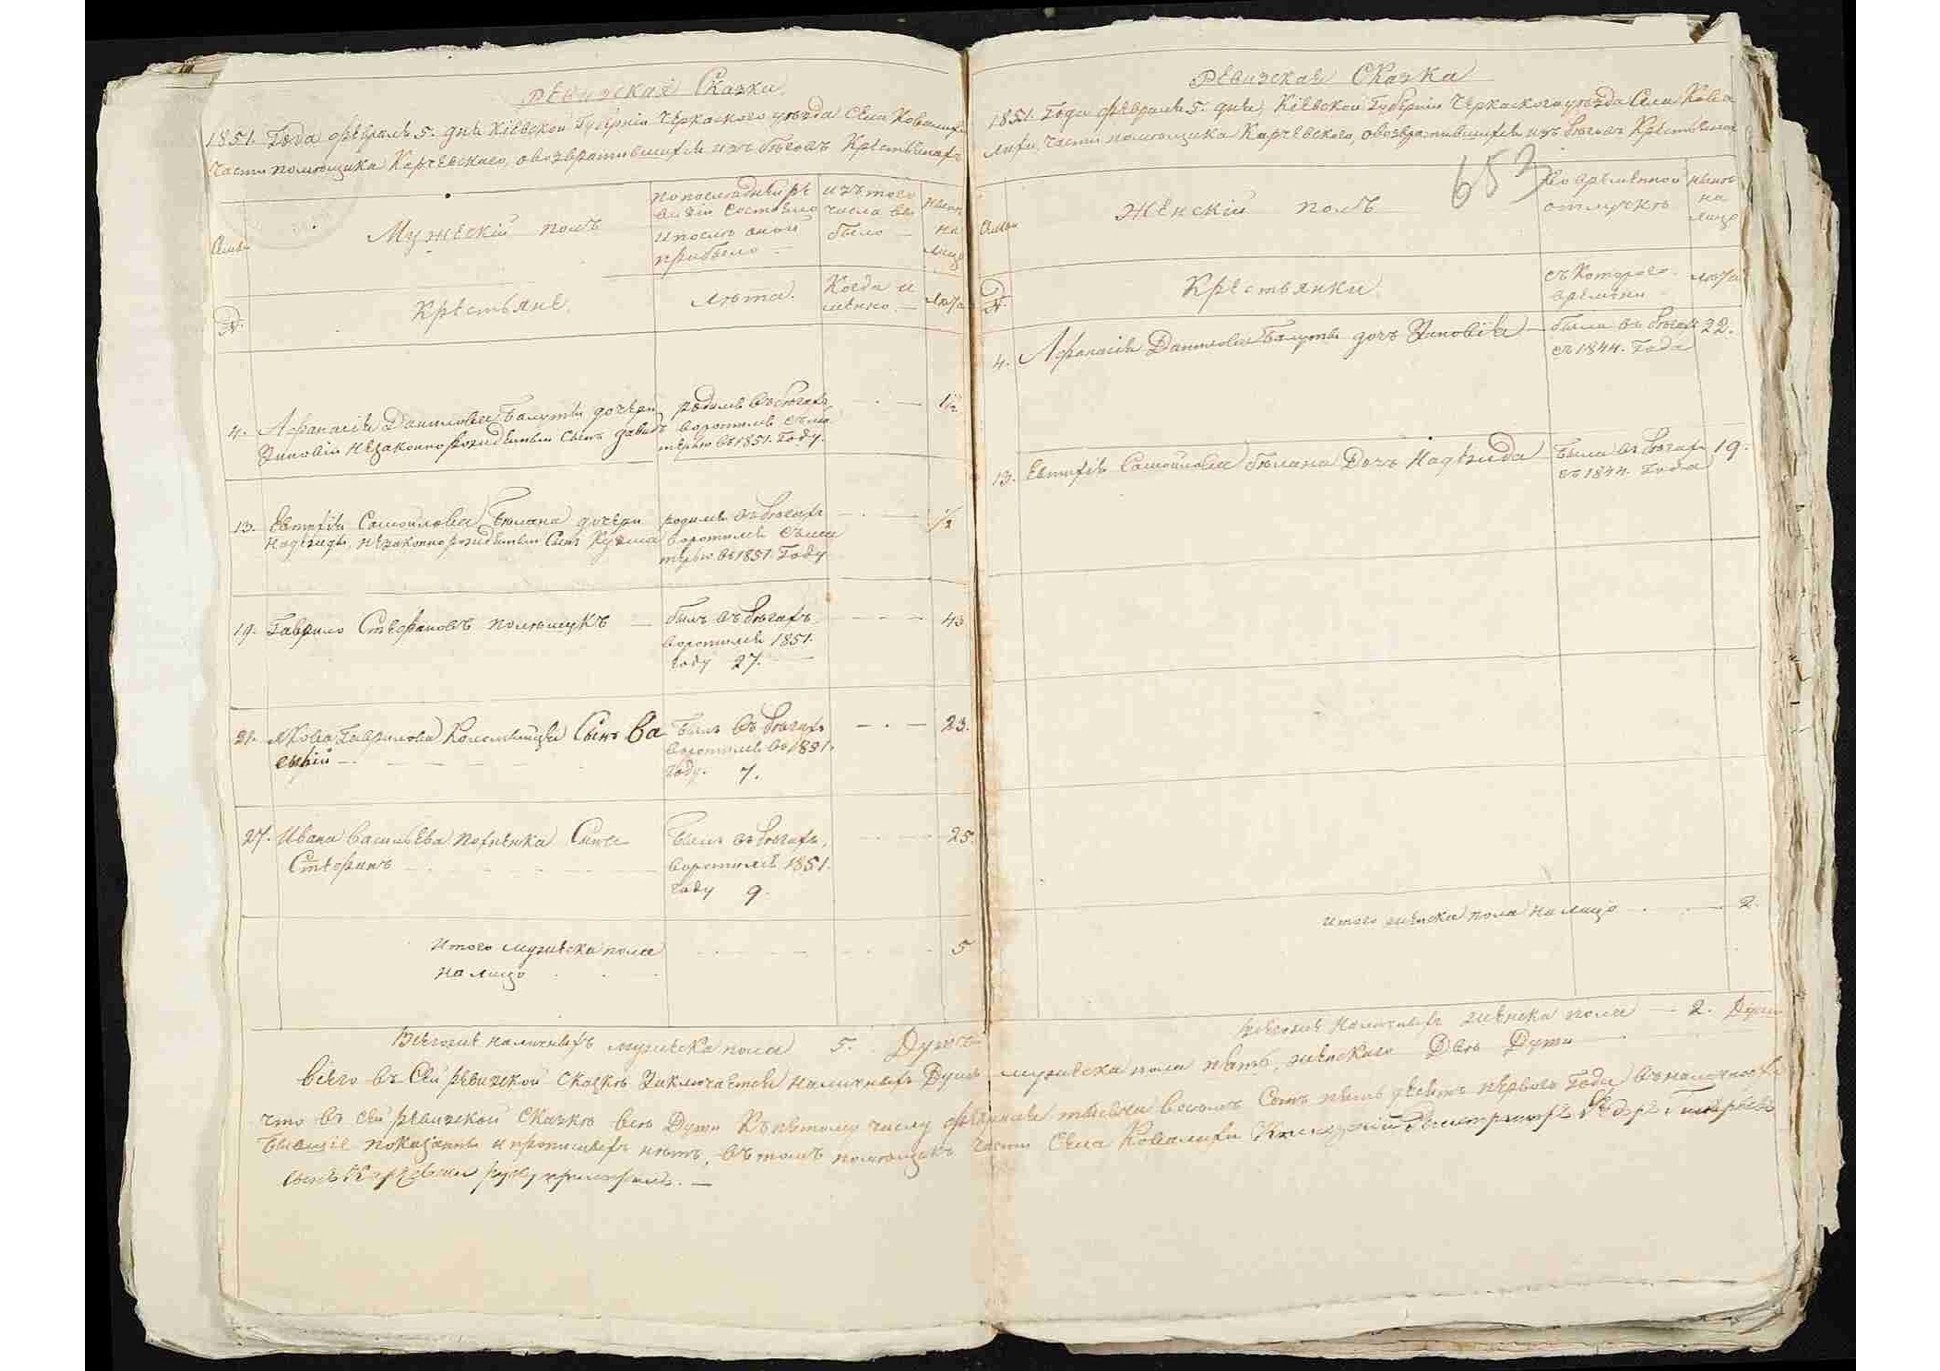 Ревизская Сказка
1851. Года февраля 5. дня Кіевской Губерніи Черкаского уезда Села Ковалихи
Части помещика Карчевскаго, овозвратившихся изъ беговъ Крестьянахъ
Семьи
Мужескій полъ
попоследней ре
визіи состояло
и после оной
прибыло
изътого
числа вы
было
ныне
на
лицо
№.
Крестьяне.
лета.
Когда и
менно.
лета
4. Афанасія Данилова дочери
Зиновіи незаконнорожденный сынъ давидъ
родился въбегахъ
воротился съма
терью въ1851. Году.
1½
13. Евтихія Самойлова Белана дочери
Надежды, незаконнорожденный Сынъ Кузма
родился въбегахъ
воротился съма
терью въ1851. Году
½
19. Гаврило Стефановъ
былъ въбегахъ
воротился 1851.
Году 27.
43
21. Якова Гаврилова Коломийца Сынъ Ва
силій
Былъ въбегахъ
воротился въ1851.
Году. 7.
23.
27. Ивана Васильева Сынъ
Стефанъ
Былъ въбегахъ,
воротился 1851.
Году 9.
25
Итого мужеска пола
налицо
5
Всегоже наличныхъ мужеска пола 5. Душъ
Ревизская Сказка
1851. Года февраля 5. дня, Кіевской Губерніи Черкаского уезда Села Кова
лихи, Части помещика Карчевского, овозвратившихся изъ беговъ Крестьянахъ
653
Семьи
Женскій полъ
Во временной
отлучке
ныне
на
лицо
№.
Крестьянки
съ Которого
времени
лета
4. Афанасія Данилова дочь Зиновія
была въ бегахъ
съ 1844. Года
22.
13. Евтихія Самойлова Белана Дочь Надежда
Была въ бегахъ
съ 1844. Года
19.
итого женска пола налицо 2.
Всегоже наличныхъ женска пола 2. Души
Всего въ Сей ревизской сказке заключается наличныхъ Душъ мужеска пола пять, женскаго Две Души
что въ сей ревизской Сказке все Души Къ пятому числу февраля тысяча восемь Сотъ пятьдесятъ перваго Года въ наличности
бывшіе показаны и прописныхъ нетъ, въ томъ помещикъ части Села Ковалихи
сынъ руку приложилъ.